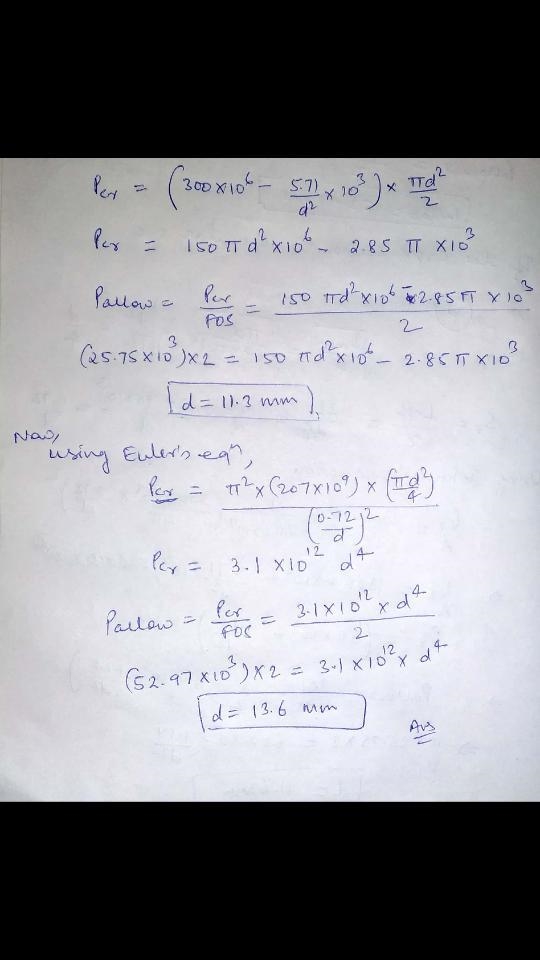 Pcr = (300×10⁶ - 5.71/d² × 10³) × πd²/2
Pcr = 150 π d² ×10⁶ - 2.85 π ×10³
Pallow = Pcr/FOS = (150 πd²×10⁶ - 2.85π ×10³)/2
(25.75×10³)×2 = 150 πd²×10⁶ - 2.85π×10³
d = 11.3 mm
Now,
using Euler's eqⁿ,
Pcr = (π² × (207×10⁹) × (πd²/4))/(0.72/d)²
Pcr = 3.1 ×10¹² d⁴
Pallow = Pcr/FOS = (3.1×10¹² × d⁴)/2
(52.97 ×10³)×2 = 3.1 ×10¹² × d⁴
d = 13.6 mm
Ans